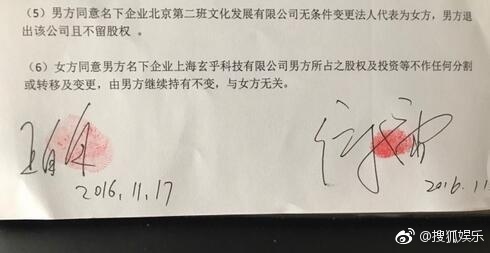 (5) 男方同意名下企业北京第二班文化发展有限公司无条件变更法人代表为女方，男方退
出该公司且不留股权 。
(6) 女方同意男方名下企业上海玄乎科技有限公司男方所占之股权及投资等不作任何分割
或转移及变更，由男方继续持有不变，与女方无关。
2016.11.17
2016.11
@搜狐娱乐